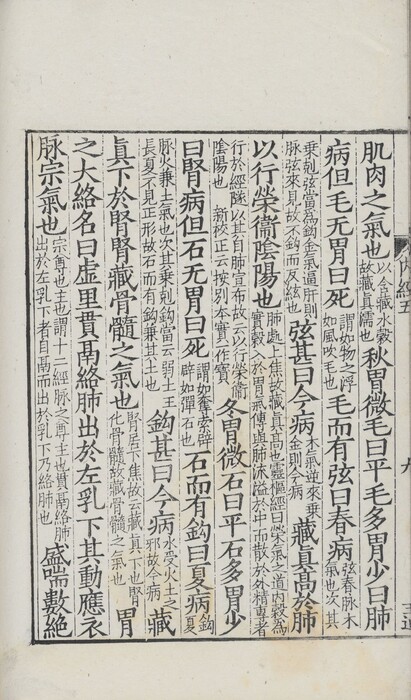 肌肉之氣也以含藏水穀故藏真濡也秋胃微毛曰平毛多胃少曰肺
病但毛无胃曰死謂如物之浮如風吹毛也毛而有弦曰春病弦春脉木氣也次其
乘剋弦當為鈎金氣逼肝則脉弦來見故不鈎而反弦也弦甚曰今病木氣逆來乘金則今病藏真高於肺
以行榮衞陰陽也肺處上焦故藏真高也靈樞經曰榮氣之道内穀為實穀入於胃氣傳與肺流溢於中而散於外精專者
行於經隧以其自肺宣布故云以行榮衞陰陽也 新校正云按别本實一作寶冬胃微石曰平石多胃少
曰腎病但石无胃曰死謂如奪索辟辟如彈石也石而有鈎曰夏病鈎夏
脉火兼土氣也次其乘剋鈎當云弱土王長夏不見正形故石而有鈎兼其土也鈎甚曰今病水受火土之邪故今病藏
真下於腎腎藏骨髓之氣也腎居下焦故云藏真下也腎化骨髓故藏骨髓之氣也胃
之大絡名曰虚里貫鬲絡肺出於左乳下其動應衣
脉宗氣也宗尊也主也謂十二經脉之尊主也貫鬲絡肺出於左乳下者自鬲而出於左乳下乃絡肺也盛喘數絶
内經五
九